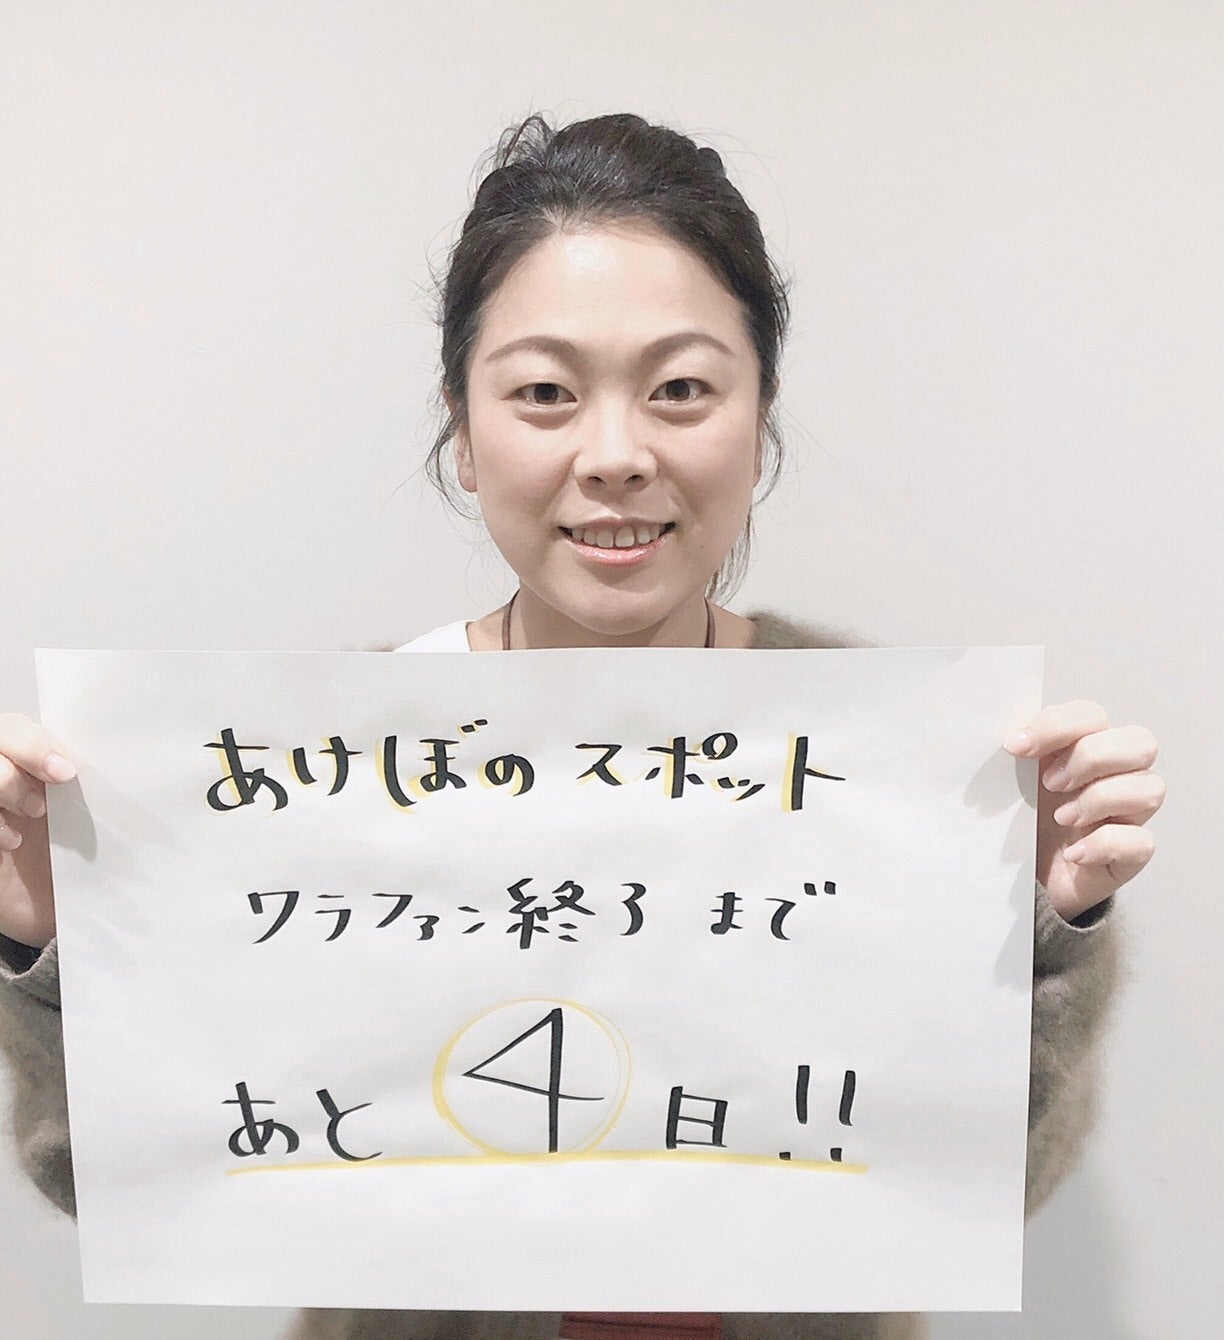 あけぼのスポット
ワラファン終了まで
あと4日!!